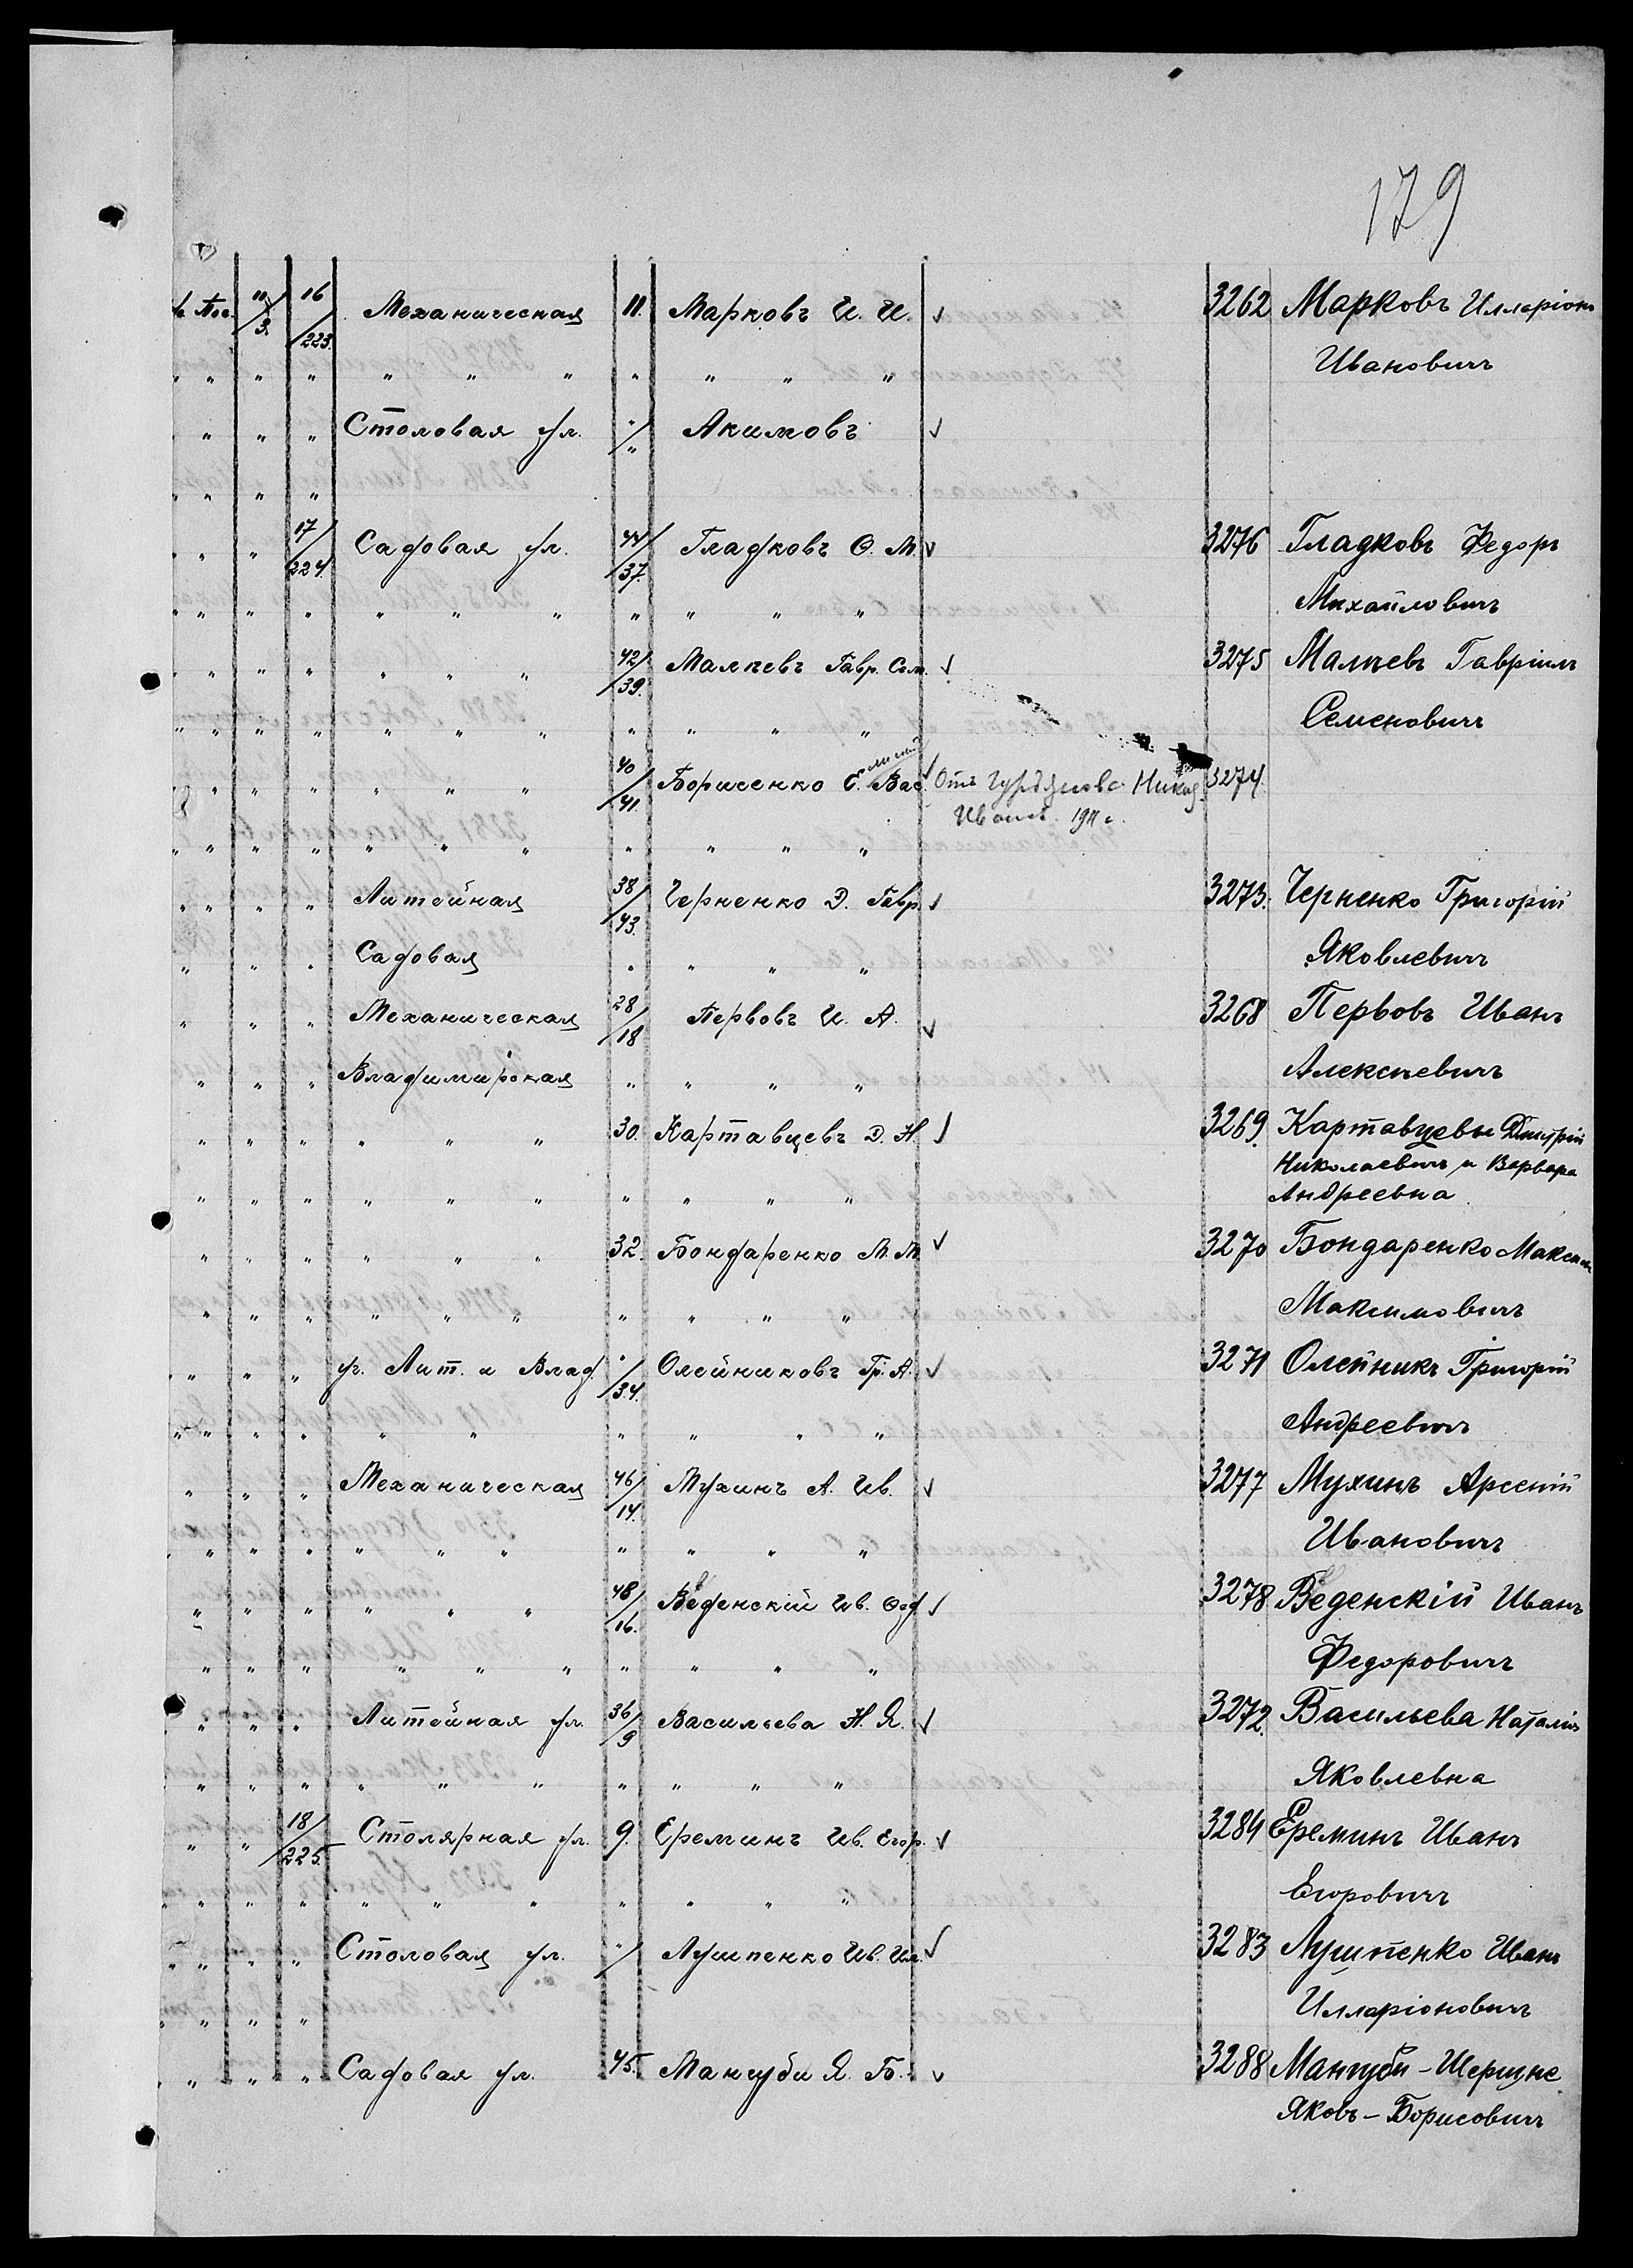 179
11/3. 16/223. Механическая 11. Марковъ И. И. ✓ 3262 Марковъ Илларіонъ
" " " " " " " " " " " Ивановичъ
" " " Столовая ул. "/" Акимовъ ✓
" " " "
" " 17/224. Садовая ул. 44/37. Гладковъ Ѳ. М. ✓ 3276 Гладковъ Федоръ
" " " " " " " " " " " Михайловичъ
" " " " " " " 42/39. Малѣевъ Гавр. Сем. ✓ 3275 Малѣевъ Гавріилъ
" " " " " " " " " " " Семеновичъ
" " " " " " " 40/41. Борисенко Е. Вас. ✓ Отъ Никод. 3274.
Иванов. 1911 г.
" " " " " " " " " " "
" " " " Литейная 38/43. Черненко Д. Гавр. ✓ 3273. Черненко Григорій
" " " Садовая " " " " Яковлевичъ
" " " Механическая 28/18 Первовъ И. А. ✓ 3268 Первовъ Иванъ
" " " Владимирская " " " " Алексѣевичъ
" " " " " " 30. Картавцевъ Д. Н. ✓ 3269. Картавцевы Дмитрій
Николаевичъ и Варвара
" " " " " " " " " " Андреевна
" " " " " " 32. Бондаренко М. М. ✓ 3270 Бондаренко Максимъ
" " " " " " " " " " Максимовичъ
" " " " уг. Лит. и Влад. "/34. Олейниковъ Гр. А. ✓ 3271 Олейникъ Григорій
" " " " " " " " " " Андреевичъ
" " " Механическая 46/14. Мухинъ А. Ив. ✓ 3277 Мухинъ Арсеній
" " " " " " " " " " " Ивановичъ
" " " " " " 48/16. Веденскій Ив. Ѳед. ✓ 3278 Веденскій Иванъ
" " " " " " " " " " Федоровичъ
" " " Литейная ул. 36/9 Васильева Н. Я. ✓ 3272. Васильева Наталія
" " " " " " " " " " Яковлевна
" " 18/225. Столярная ул. 9. Ереминъ Ив. Егор. ✓ 3284 Ереминъ Иванъ
" " " " " " " " " " " Егоровичъ
" " " " Столовая ул. "/ Лушпенко Ив. Ил. ✓ 3283 Лушпенко Иванъ
" " " " Илларіоновичъ
" " " Садовая ул. 45. Мангуби Я. Б. ✓ 3288 Мангуби-Шерцне
Яковъ-Борисовичъ